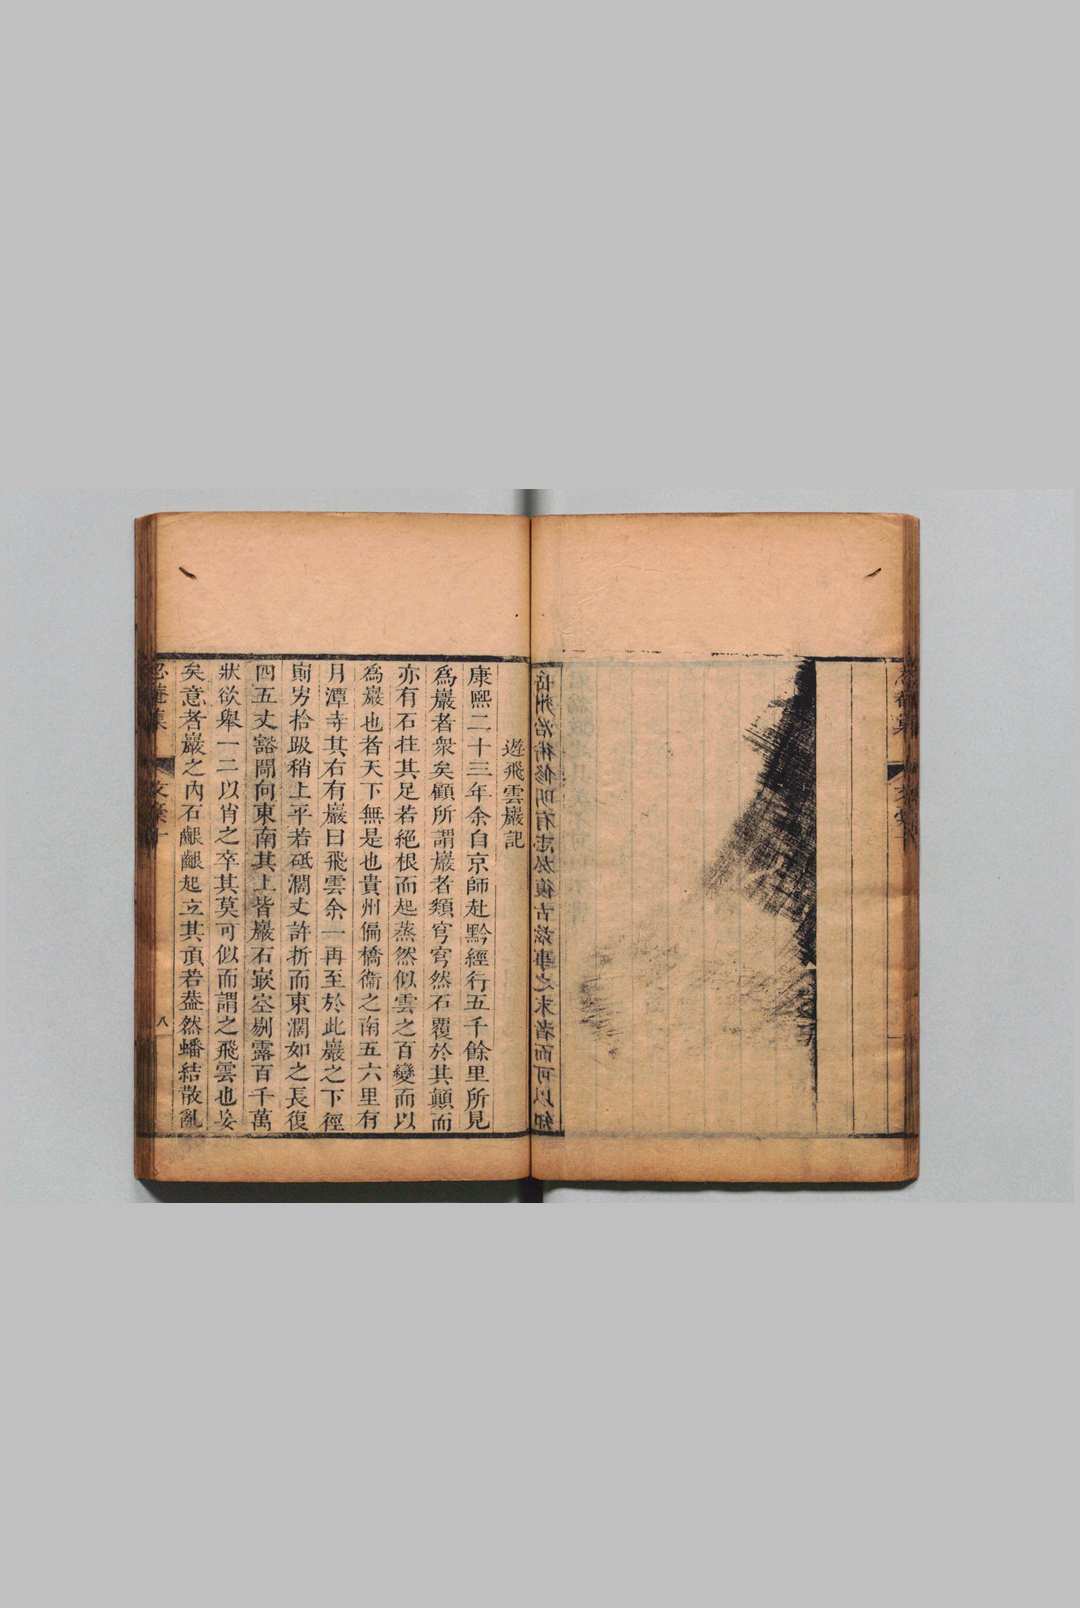 岳州治術修明有志於復古茲事之末者而可以知
遊飛雲巖記
康熙二十三年余自京師赴黔經行五千餘里所見
爲巖者衆矣顧所謂巖者類穹穹然石覆於其顛而
亦有石拄其足若絕根而起蒸然似雲之百變而以
爲巖也者天下無是也貴州偏橋衞之南五六里有
月潭寺其右有巖曰飛雲余一再至於此巖之下徑
拾趿稍上平若砥濶丈許折而東濶如之長復
四五丈豁閜向東南其上皆巖石嵌空剔露百千萬
狀欲舉一二以肖之卒其莫可似而謂之飛雲也妄
矣意者巖之內石齦齦起立其頂若葢然蟠結散亂
忍菴集 文稾 八